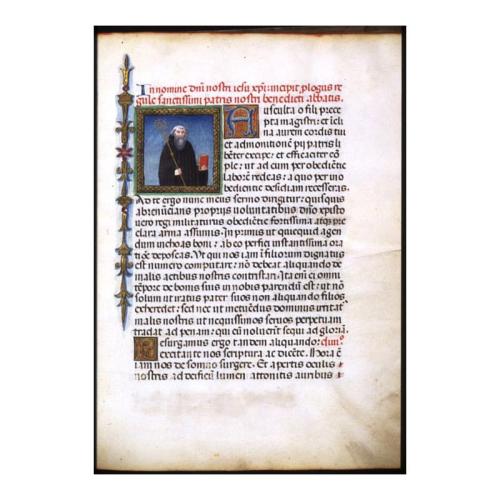 In nomine dm̄ nostri iesu xp̄i: incipit ꝓlogus re
gule sanctissimi patris nostri benedicti abbatis.
Ausculta o fili prece
pta magistri: et īcli
na aurem cordis tui
et admonitionē pii patris li
bēter excipe: et efficaciter cō
ple: ut ad eum per obediētie
laborē redeas: a quo per ino
bedientie desidiam recesseras.
Ad te ergo nunc meus sermo dirigitur: quisquis
abrenūcians propriis voluntatibus dn̄o xpisto
uero regi militaturus obediētie fortissima atque pre
clara arma assumis. In primis ut quicquid agen
dum inchoas boni: ab eo perfici instantissima ora
tiōe deposcas. Ut qui nos iam ī filiorum dignatus
est numero computare: nō debeat aliquando de
malis actibus nostris contristari. Ita enī ei omni
tēpore de bonis suis in nobis parendū est: ut nō
solum ut iratus pater suos non aliquando filios
exheredet: sed nec ut metuēdus dominus irritat
malis nostris ut nequissimos seruos perpetuam
tradat ad penam: qui eū noluerīt sequi ad gloriā.
Resurgamus ergo tandem aliquando:
excitante nos scriptura ac dicēte. Hora ē
iam nos de somno surgere. Et apertis oculis
nostris ad deificū lumen attonitis auribus